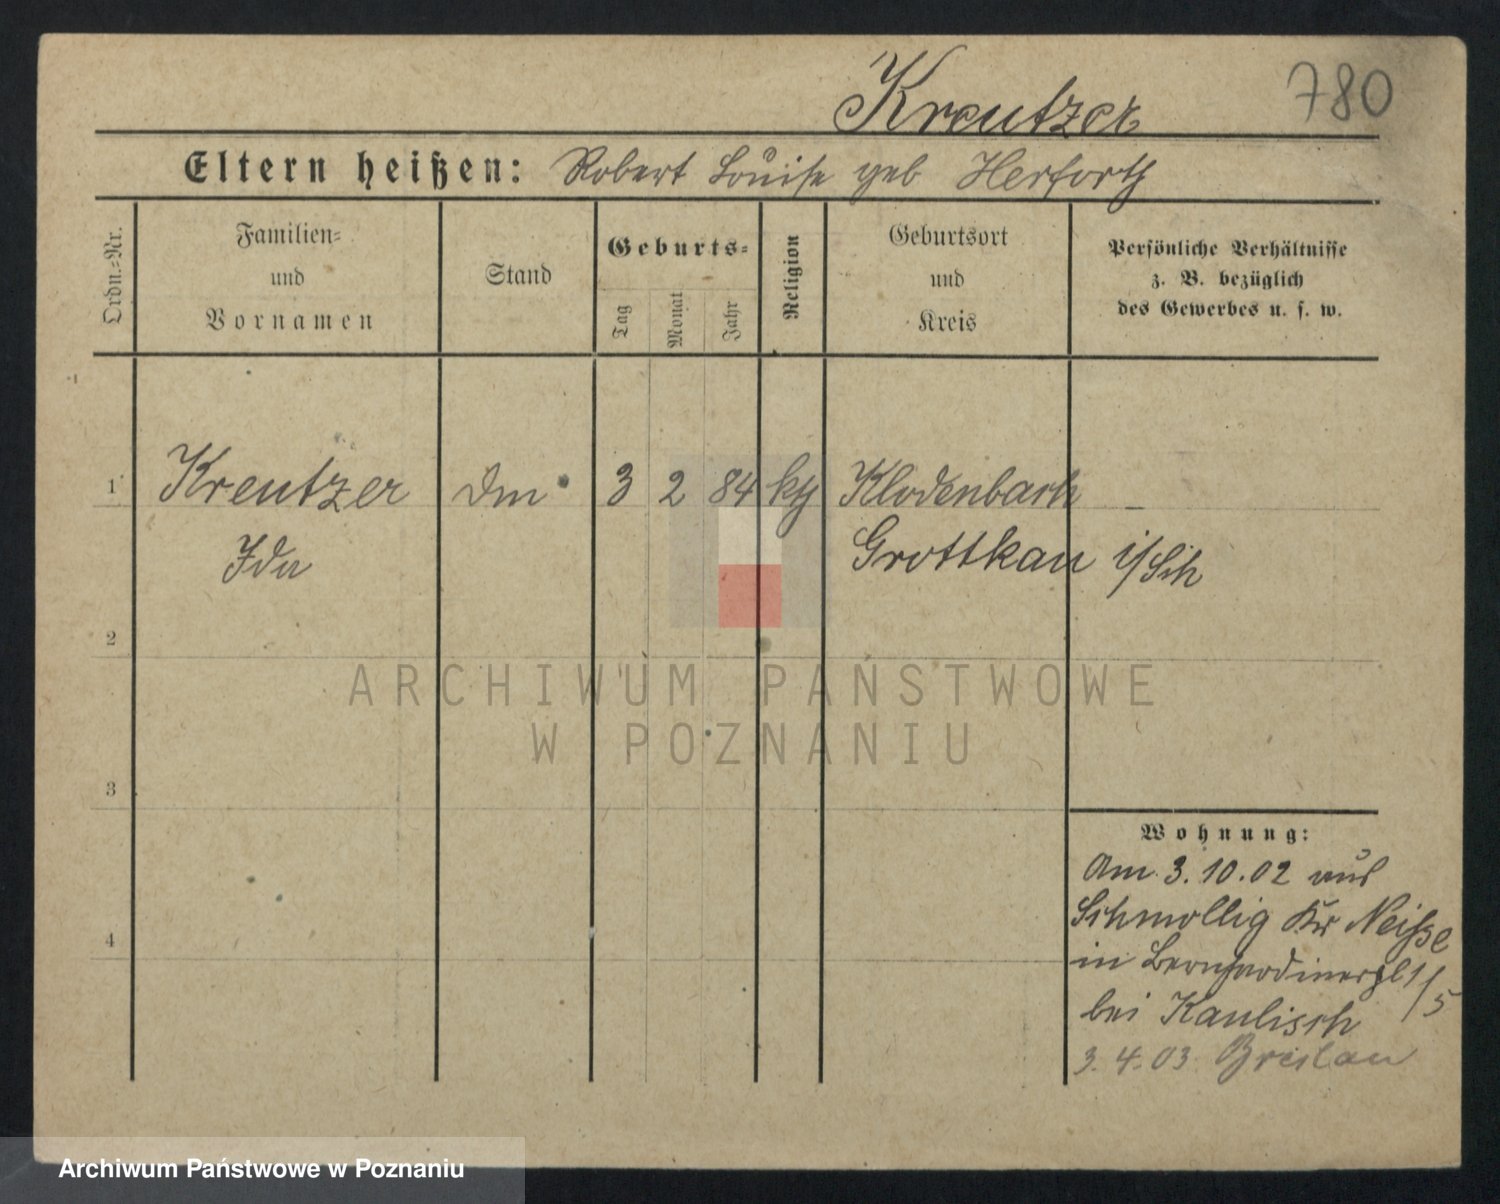 780
Kreutzer
Eltern heißen: Robert Louise geb Herforth
Ordn.=Nr.
Familien=
und
Vornamen
Stand
Geburts=
Tag
Monat
Jahr
Religion
Geburtsort
und
Kreis
Persönliche Verhältnisse
z. B. bezüglich
des Gewerbes u. s. w.
1 Kreutzer Dm 3 2 84 kth Klodenbach
Ida Grottkau i/Sch
2
ARCHIWUM PAŃSTWOWE
W POZNANIU
3
Wohnung:
Am 3.10.02 aus
Schmollig Kr Neisse
4
in Bernhardinerpl 1/5
bei Kaulisch
3.4.03 Breslau
Archiwum Państwowe w Poznaniu